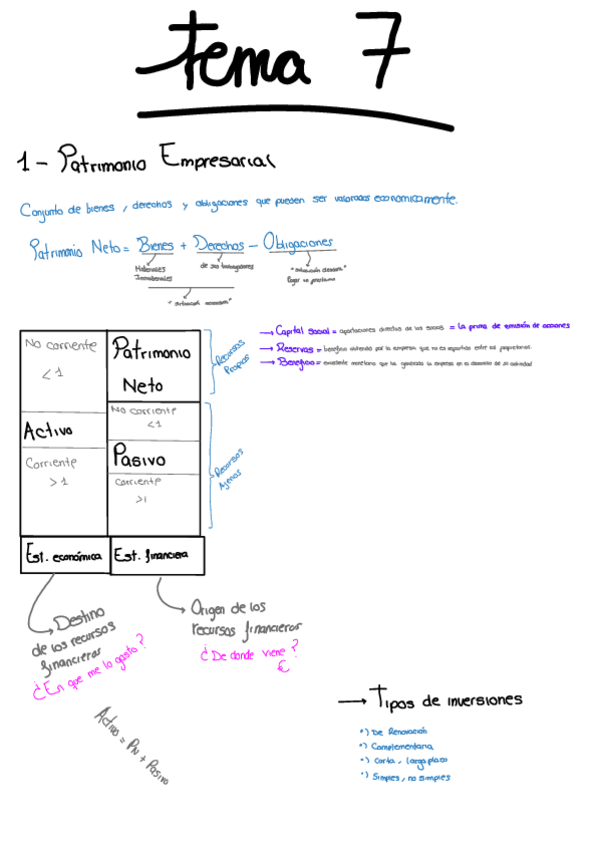 tema 7
1 - Patrimonio Empresarial
Conjunto de bienes, derechos y obligaciones que pueden ser valoradas economicamente.
Patrimonio Neto = Bienes + Derechos - Obligaciones
Materiales
Inmateriales
de sus trabajadores
Pagar un prestamo
→ Capital Social = aportaciones directas de los socios = la prima de emisión de acciones
→ Reservas = beneficio obtenido por la empresa que no es repartido entre los propietarios.
→ Beneficio = excedente monetario que ha generado la empresa en el desarrollo de su actividad
No corriente
< 1
Activo
Corriente
> 1
Patrimonio
Neto
No corriente
< 1
Pasivo
Corriente
> 1
Recursos
Propios
Recursos
Ajenos
Est. económica
Est. financiera
Destino
de los recursos
financieros
¿En que me lo gasto?
Origen de los
recursos financieros
¿De donde viene?
€
Activo = PN + Pasivo
→ Tipos de inversiones
*) De Renovación
*) Complementaria,
*) Corta, largo plazo
*) Simples, no simples